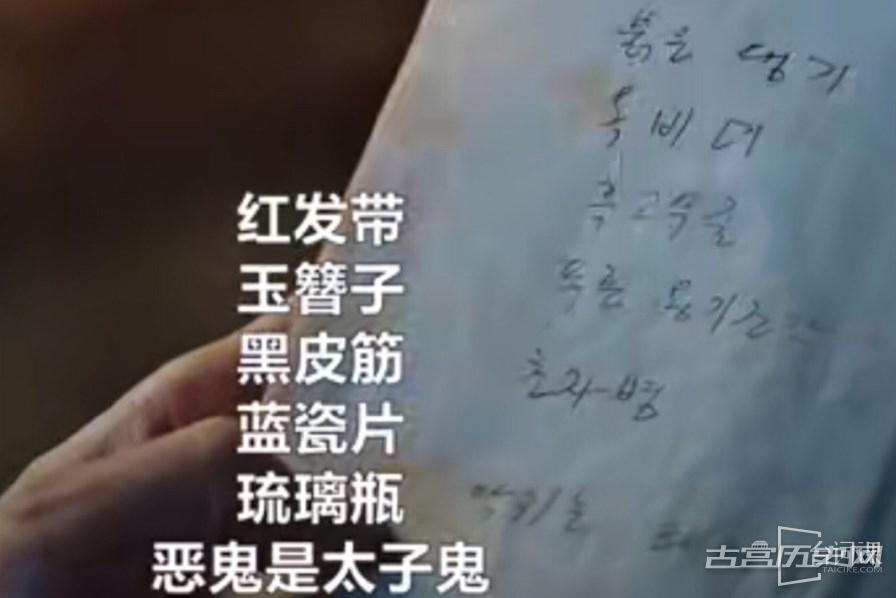 붉은 댕기
옥비녀
흑고무줄
푸른 옹기조각
초자병
악귀는
红发带
玉簪子
黑皮筋
蓝瓷片
琉璃瓶
恶鬼是太子鬼
台词观
TAICIKE.COM